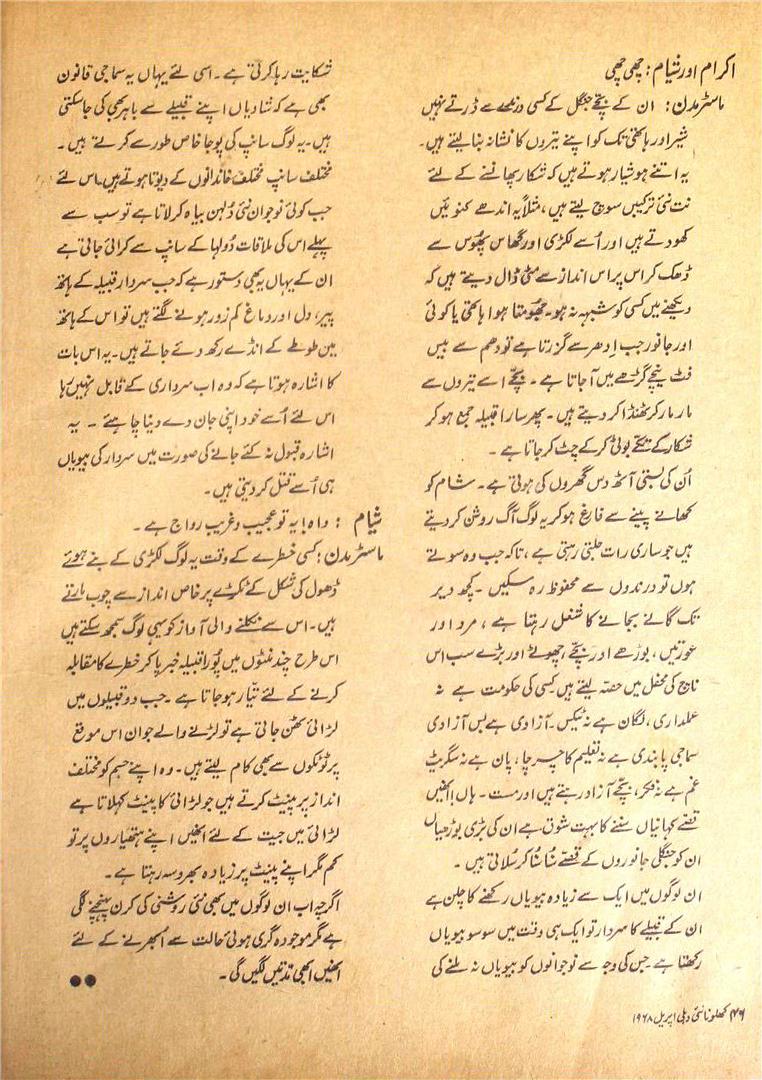 اکرام اور شیام: چھی چھی
ماسٹر مدن: ان کے بچّے جنگل کے کسی درندے سے ڈرتے نہیں
شیر اور ہاتھی تک کو اپنے تیروں کا نشانہ بنا لیتے ہیں۔
یہ اتنے ہوشیار ہوتے ہیں کہ شکار پھانسنے کے لئے
نت نئی ترکیبیں سوچ لیتے ہیں، مثلاً یہ اندھے کنوئیں
کھودتے ہیں اور اُسے لکڑی اور گھاس پھُوس سے
ڈھک کر اس پر اس انداز سے مٹی ڈال دیتے ہیں کہ
دیکھنے میں کسی کو شبہہ نہ ہو۔ جھُومتا ہوا ہاتھی یا کوئی
اور جانور جب اِدھر سے گزرتا ہے تو دھم سے بیس
فٹ نیچے گڑھے میں آجاتا ہے۔ بچّے اسے تیروں سے
مار مار کر ٹھنڈا کر دیتے ہیں۔ پھر سارا قبیلہ جمع ہو کر
شکار کے تکّے بوٹی کرکے چٹ کر جاتا ہے۔
اُن کی بستی آٹھ دس گھروں کی ہوتی ہے۔ شام کو
کھانے پینے سے فارغ ہو کر یہ لوگ آگ روشن کر دیتے
ہیں جو ساری رات جلتی رہتی ہے، تاکہ جب وہ سوتے
ہوں تو درندوں سے محفوظ رہ سکیں۔ کچھ دیر
تک گانے بجانے کا شغل رہتا ہے، مرد اور
عورتیں، بوڑھے اور بچّے، چھوٹے اور بڑے سب اس
ناچ کی محفل میں حصّہ لیتے ہیں کسی کی حکومت ہے نہ
عملداری، لگان ہے نہ ٹیکس۔ آزادی ہے بس آزادی
سماجی پابندی ہے نہ تعلیم کا چرچا، پان ہے نہ سگریٹ
غم ہے نہ فکر، بچّے آزاد رہتے ہیں اور مست۔ ہاں انھیں
قصّے کہانیاں سننے کا بہت شوق ہے ان کی بڑی بوڑھیاں
ان کو جنگلی جانوروں کے قصّے سُنا سُنا کر سُلاتی ہیں۔
ان لوگوں میں ایک سے زیادہ بیویاں رکھنے کا چلن ہے
ان کے قبیلے کا سردار تو ایک ہی وقت میں سو سو بیویاں
رکھتا ہے۔ جس کی وجہ سے نوجوانوں کو بیویاں نہ ملنے کی
شکایت رہا کرتی ہے۔ اسی لئے یہاں یہ سماجی قانون
بھی ہے کہ شادیاں اپنے قبیلے سے باہر بھی کی جاسکتی
ہیں۔ یہ لوگ سانپ کی پوجا خاص طور سے کرتے ہیں۔
مختلف سانپ مختلف خاندانوں کے دیوتا ہوتے ہیں۔ اس لئے
جب کوئی نوجوان نئی دُلہن بیاہ کر لاتا ہے تو سب سے
پہلے اس کی ملاقات دُولہا کے سانپ سے کرائی جاتی ہے
ان کے یہاں یہ بھی دستور ہے کہ جب سردار قبیلہ کے ہاتھ
پیر، دل اور دماغ کمزور ہونے لگتے ہیں تو اس کے ہاتھ
میں طوطے کے انڈے رکھ دئے جاتے ہیں۔ یہ اس بات
کا اشارہ ہوتا ہے کہ وہ اب سرداری کے قابل نہیں رہا
اس لئے اُسے خود اپنی جان دے دینا چاہئے۔ یہ
اشارہ قبول نہ کئے جانے کی صورت میں سردار کی بیویاں
ہی اُسے قتل کر دیتی ہیں۔
شیام : واہ! یہ تو عجیب و غریب رواج ہے۔
ماسٹر مدن: کسی خطرے کے وقت یہ لوگ لکڑی کے بنے ہوئے
ڈھول کی شکل کے ٹکڑے پر خاص انداز سے چوب مارتے
ہیں۔ اس سے نکلنے والی آواز کو یہی لوگ سمجھ سکتے ہیں
اس طرح چند منٹوں میں پُورا قبیلہ خبر پا کر خطرے کا مقابلہ
کرنے کے لئے تیّار ہوجاتا ہے۔ جب دو قبیلوں میں
لڑائی ٹھن جاتی ہے تو لڑنے والے جوان اس موقع
پر ٹوٹکوں سے بھی کام لیتے ہیں۔ وہ اپنے جسم کو مختلف
انداز پر پینٹ کرتے ہیں جو لڑائی کا پینٹ کہلاتا ہے
لڑائی میں جیت کے لئے انھیں اپنے ہتھیاروں پر تو
کم مگر اپنے پینٹ پر زیادہ بھروسہ رہتا ہے۔
اگرچہ اب ان لوگوں میں بھی نئی روشنی کی کرن پہنچنے لگی
ہے مگر موجودہ گری ہوئی حالت سے اُبھرنے کے لئے
انھیں ابھی مدتیں لگیں گی۔ ●●
۴۶ کھلونا نئی دہلی اپریل ۱۹۶۸